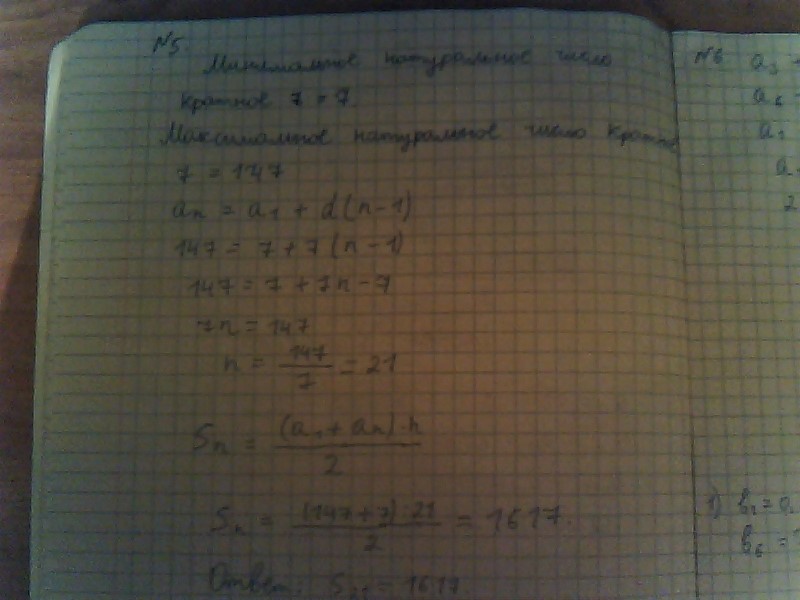 N5
Минимальное натуральное число
кратное 7 = 7
Максимальное натуральное число кратное
7 = 147
an = a1 + d(n-1)
147 = 7 + 7(n-1)
147 = 7 + 7n - 7
7n = 147
n = 147/7 = 21
Sn = (a1 + an)·n/2
Sn = (147+7)·21/2 = 1617.
Ответ: S21 = 1617
N6 a3
a6
a1
a
2
1) b1 = a
b6 =